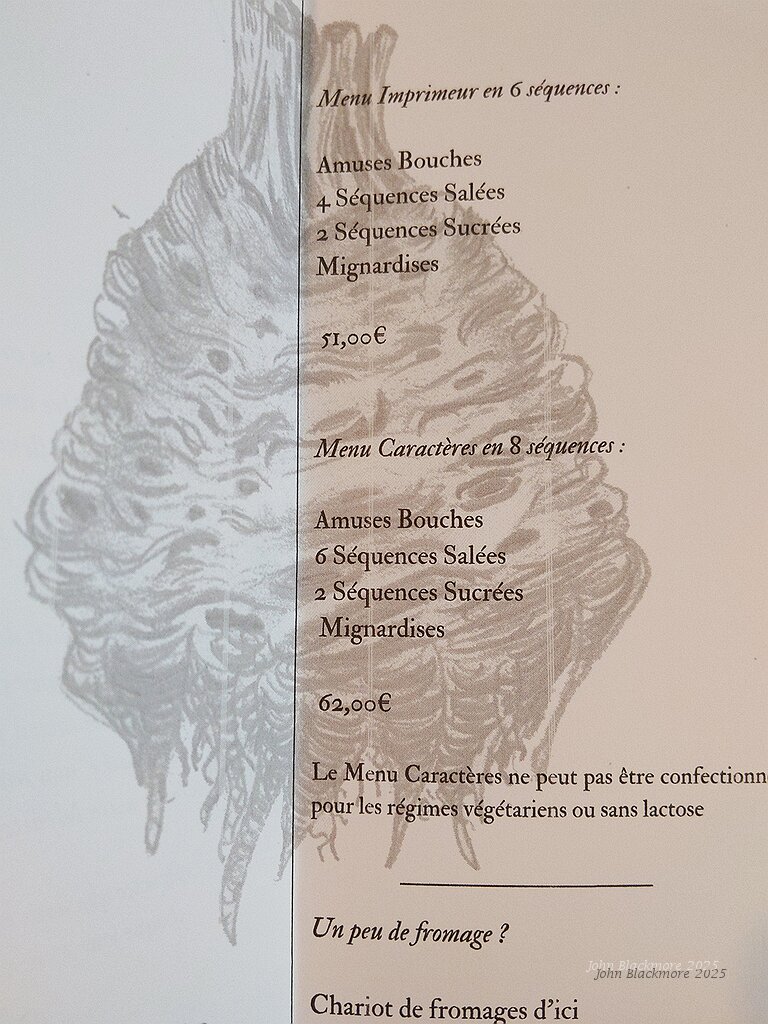 Menu Imprimeur en 6 séquences :
Amuses Bouches
4 Séquences Salées
2 Séquences Sucrées
Mignardises
51,00€
Menu Caractères en 8 séquences :
Amuses Bouches
6 Séquences Salées
2 Séquences Sucrées
Mignardises
62,00€
Le Menu Caractères ne peut pas être confectionn
pour les régimes végétariens ou sans lactose
Un peu de fromage ?
John Blackmore 2025
John Blackmore 2025
Chariot de fromages d'ici